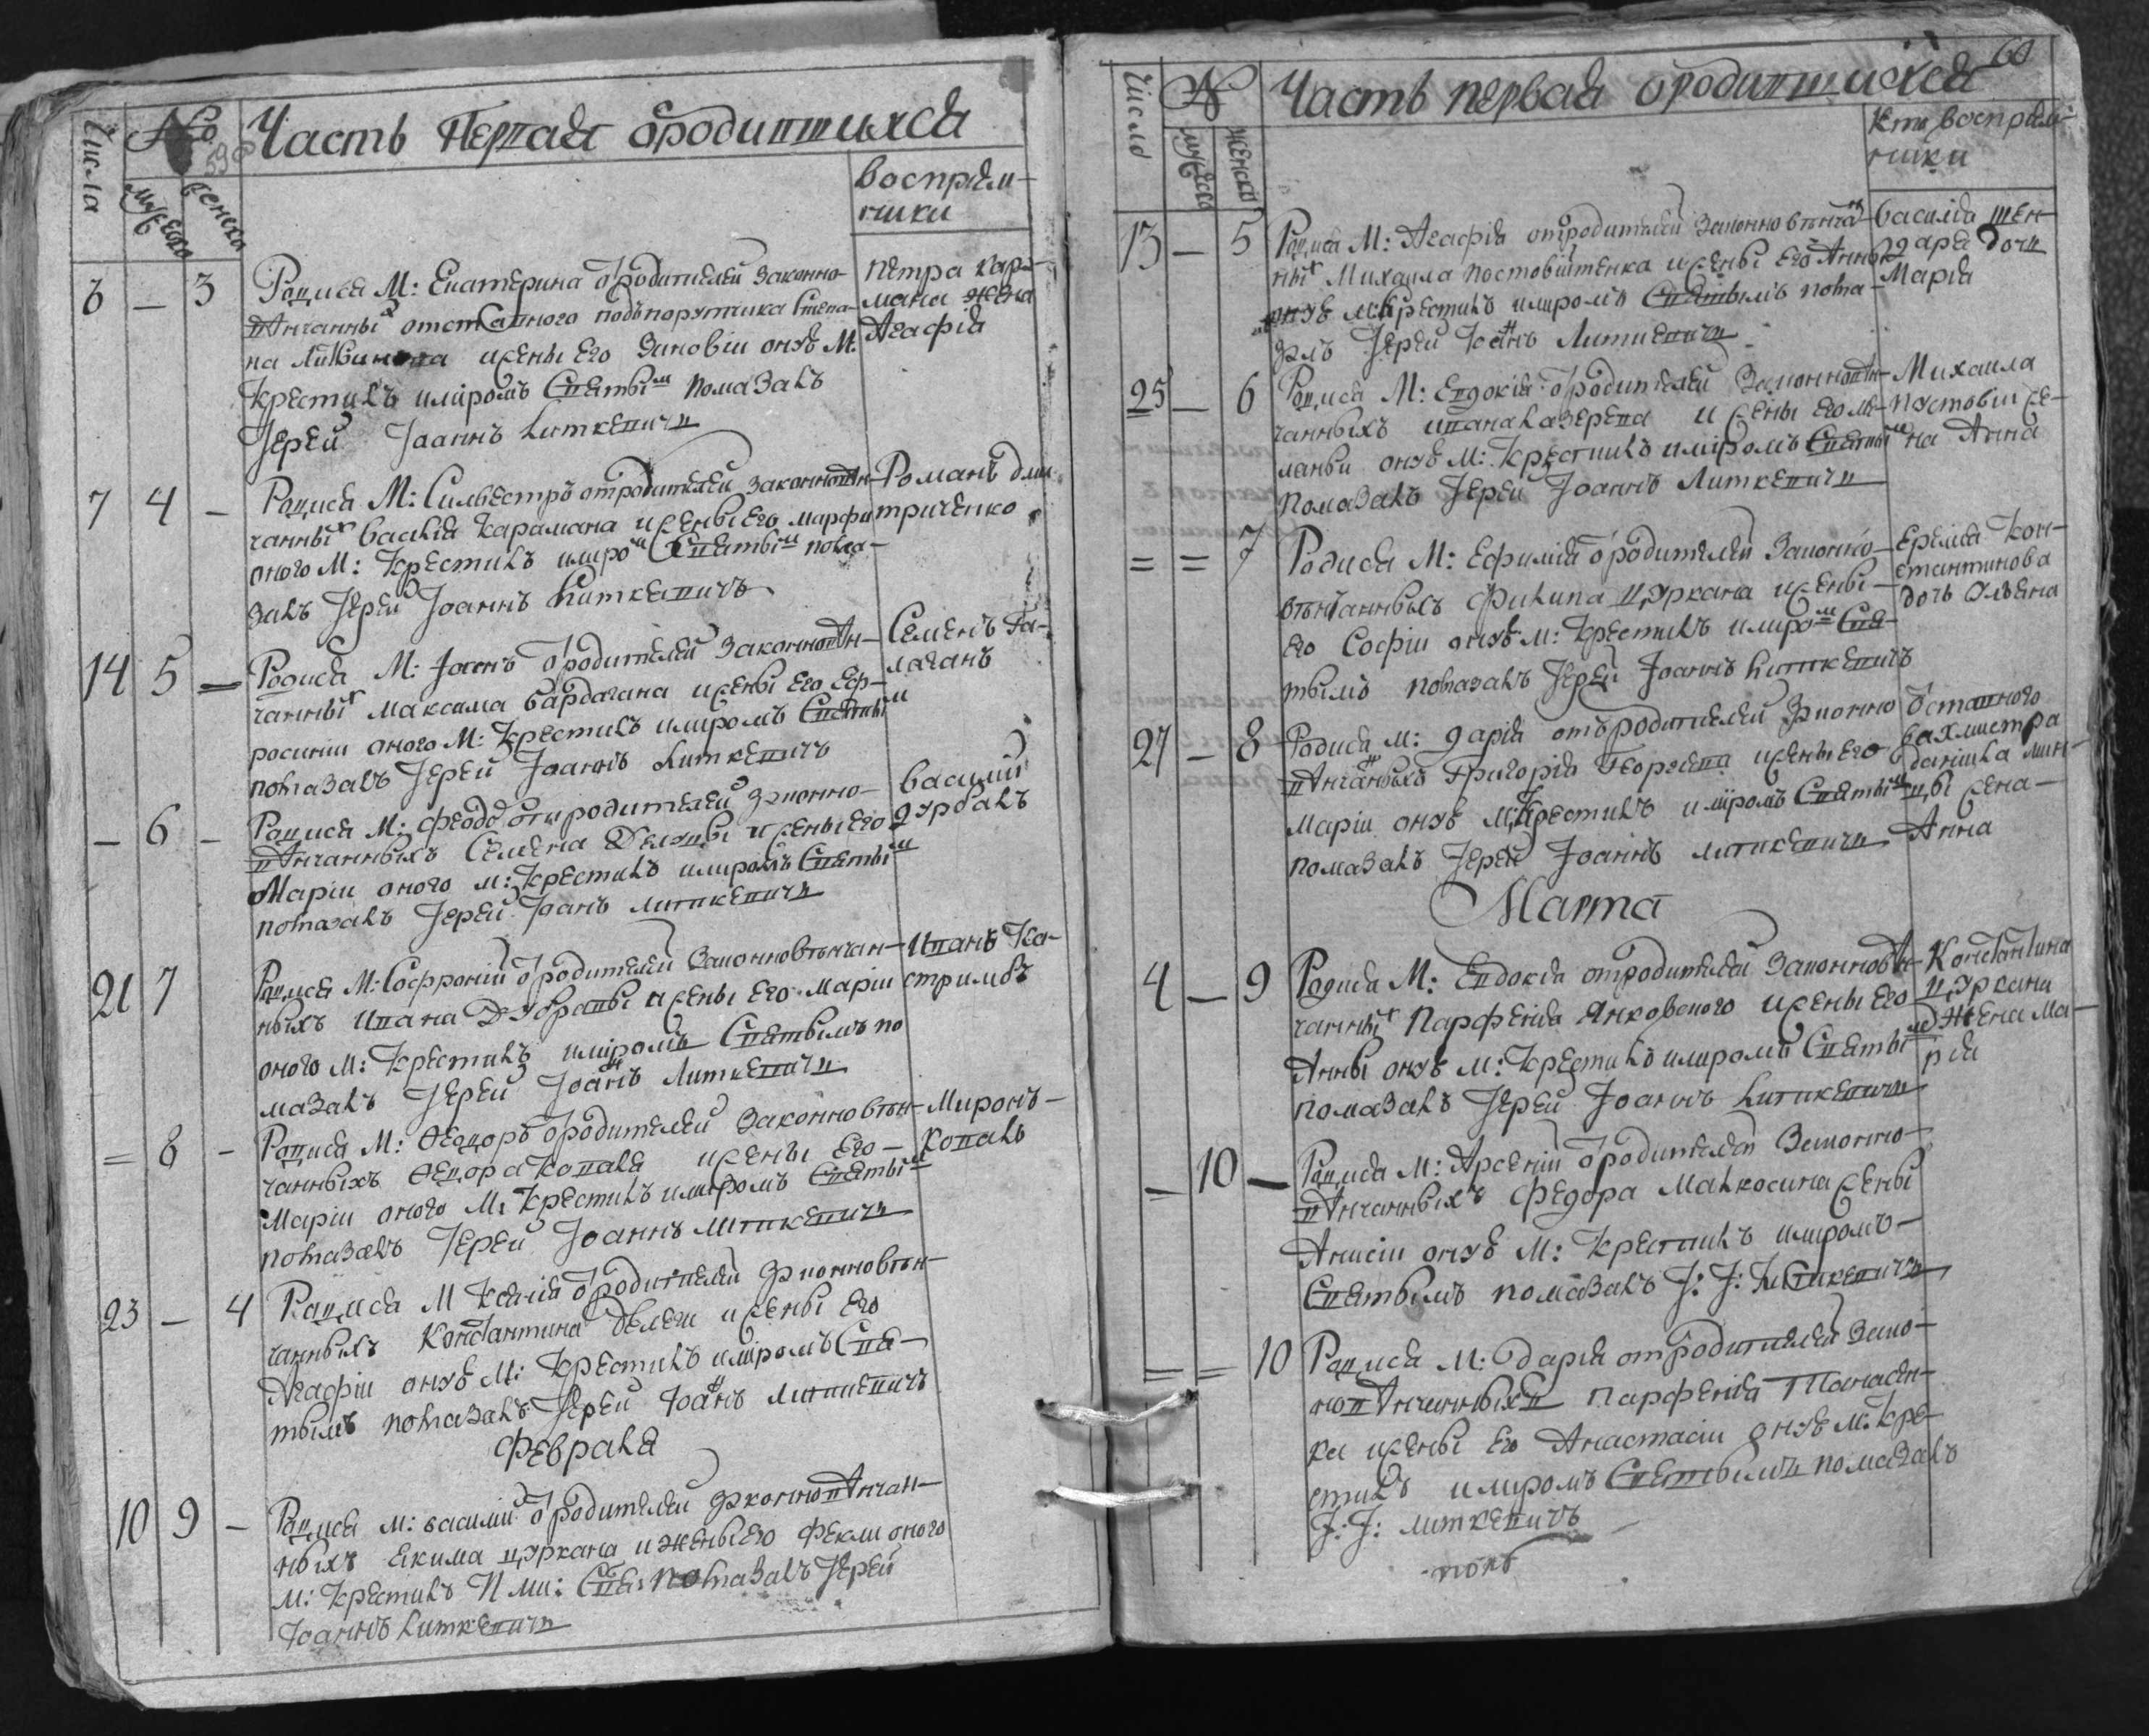 Числа
№
мужеска
женска
Часть Первая ородившихся
восприем-
ники
6 — 3
Родися М: Екатерина ѿродителей законно-
вѣнчанны отставного подъпорутчика Степа-
на Литвинова ижены Его Зиновіи онуѣ М:
крестилъ имѵромъ Святым помазалъ
Іерей Іоаннъ Литкевичъ
Петра Кара-
мана жена
Агафія
7 4 —
Родися М: Сильвестръ отродителей законновѣн-
чанных василія Карамана ижены Его Марфи
оного М: Крестилъ имѵром Святым пома-
залъ Іерей Іоаннъ Литкевичъ
Романъ Дми-
триченко
14 5 —
Родися М: Іоаннъ ѿродителей законновѣн-
чанных Максима Бардагана ижены Его Еф-
росиніи оного М: Крестилъ имѵромъ Святым
помазалъ Іерей Іоаннъ Литкевичъ
Семенъ Га-
лаганъ
— 6 —
Родися М: Феодо отродителей Законно-
вѣнчанныхъ Семена ижены его
Маріи оного М: Крестилъ имѵромъ Святым
помазалъ Іерей Іоанъ Литкевичъ
василий
Дурбалъ
21 7
Родися М: Софроній ѿродителей Законновѣнчан-
ныхъ Ивана Дубравы ижены Его Маріи
оного М: Крестилъ имѵромъ Святымъ по
мазалъ Іерей Іоаннъ Литкевичъ
Иванъ Ка-
стримъ
= 8 —
Родися М: Ѳеодоръ ѿродителей Законновѣн-
чанныхъ Ѳедора Коваля ижены Его —
Маріи оного М: Крестилъ имѵромъ Святым
помазалъ Іерей Іоаннъ Литкевичъ
Миронъ —
Коваль
23 — 4
Родися М Ксенія ѿродителей Законновѣн-
чанныхъ Константина ижены Его
Агафіи онуѣ М: Крестилъ имѵромъ Свя-
тымъ помазалъ Іерей Іоанъ Литкевичъ
Февраля
10 9 —
Родися М: василий ѿродителей Законновѣнчан-
ныхъ Екима Цуркана иженыЕго Феклы оного
М: Крестилъ И ми: Свя: помазалъ Іерей
Іоаннъ Литкевичъ
60
Число
№
мужеска
женска
Часть первая ородившихся
Кто восприем-
ники
13 — 5
Родися М: Агафія отродителей Законно вѣнча-
ных Михаила постовитенка ижены его Анны
онуѣ М: Крестилъ имѵромъ Святымъ пома-
залъ Іерей Іоанъ Литкевичъ
василія Шен-
даря дочъ
Марія
25 — 6
Родися М: Евдокія ѿродителей Законновѣн-
чанныхъ Ивана Лазерева ижены его Ме-
ланьи онуѣ М: Крестилъ имѵромъ Святым
помазалъ Іерей Іоаннъ Литкевичъ
Михаила
постовіи же-
на Анна
= = 7
Родися М: Ефимія ѿродителей Законно-
вѣнчанныхъ Филипа Цуркана ижены —
Его Софіи онуѣ М: Крестилъ имѵром Свя-
тымъ помазалъ Іерей Іоаннъ Литкевичъ
Еремія Кон-
стантинова
дочъ Ольяна
27 — 8
Родися М: Дарія отъродителей Законно
вѣнчаныхъ Григорія Георгіева ижены Его
Маріи онуѣ М: Крестилъ имѵромъ Святым
помазалъ Іерей Іоаннъ Литкевичъ
Ѿставного
вахмистра
Данішла мин-
цы жена —
Анна
Марта
4 — 9
Родися М: Евдокія отродителей Законновѣн-
чанных Парфенія Янковского ижены Его
Анны онуѣ М: Крестилъ имѵромъ Святым
помазалъ Іерей Іоаннъ Литкевичъ
Константина
Цуркана
Жена Ма-
рія
— 10 —
Родися М: Арсеній ѿродителей Законно-
вѣнчанныхъ Федора Малкосина жены
Анисіи онуѣ М: Крестилъ имѵромъ —
Святымъ помазалъ І: І: Литкевичъ
= = 10
Родися М: Дарія отродителей Зако-
новѣнчанныхъ Парфенія Танасен-
ки ижены Его Анастасіи онуѣ М: Кре-
стилъ имѵромъ Святымъ помазалъ
І: І: Литкевичъ